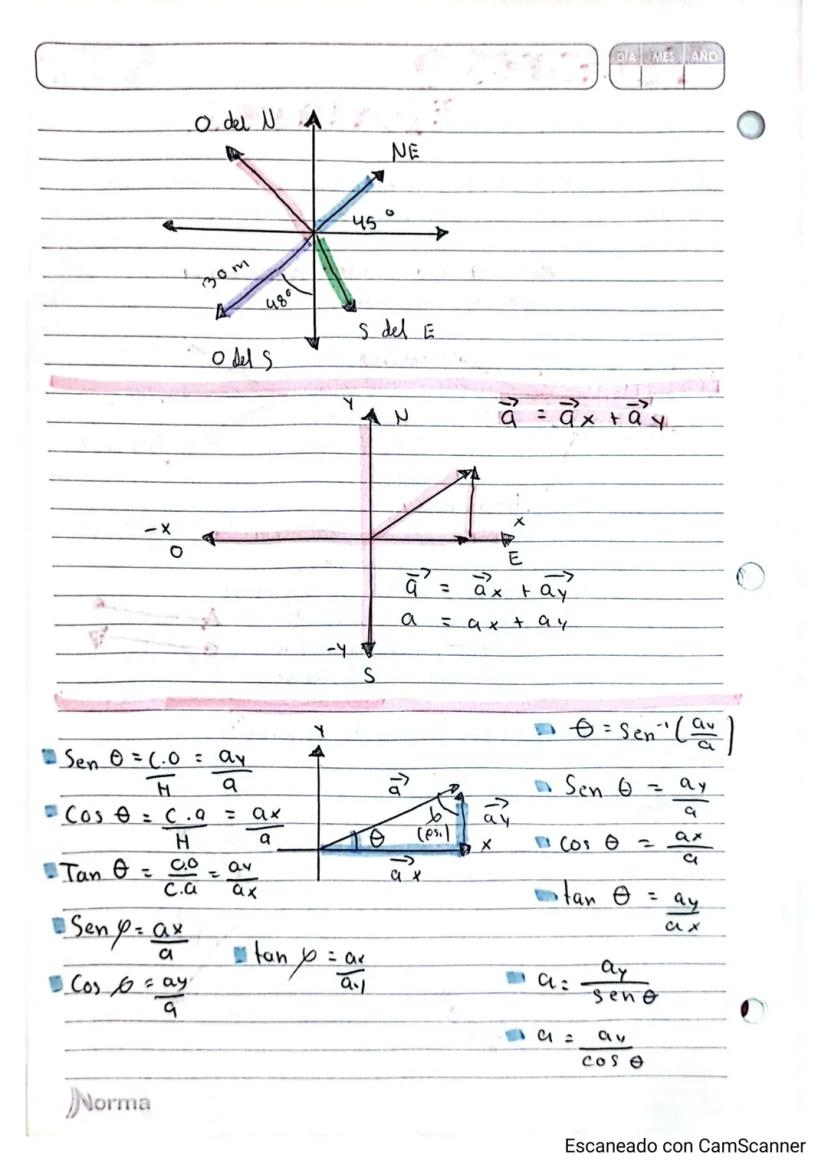 DIA MES AÑO
O del N
NE
45°
30 m
48°
S del E
O del S
Y
N
a⃗ = a⃗x + a⃗y
-X
O
x
E
a⃗ = a⃗x + a⃗y
a = ax + ay
-Y
S
Sen θ = C.O/H = ay/a
Cos θ = C.a/H = ax/a
Tan θ = C.O/C.a = ay/ax
Sen φ = ax/a
Cos φ = ay/a
tan φ = ax/ay
Y
a⃗
θ
(psi)
a⃗y
x
a⃗x
θ = Sen⁻¹(ay/a)
Sen θ = ay/a
cos θ = ax/a
tan θ = ay/ax
a = ay/sen θ
a = ay/cos θ
Norma
Escaneado con CamScanner